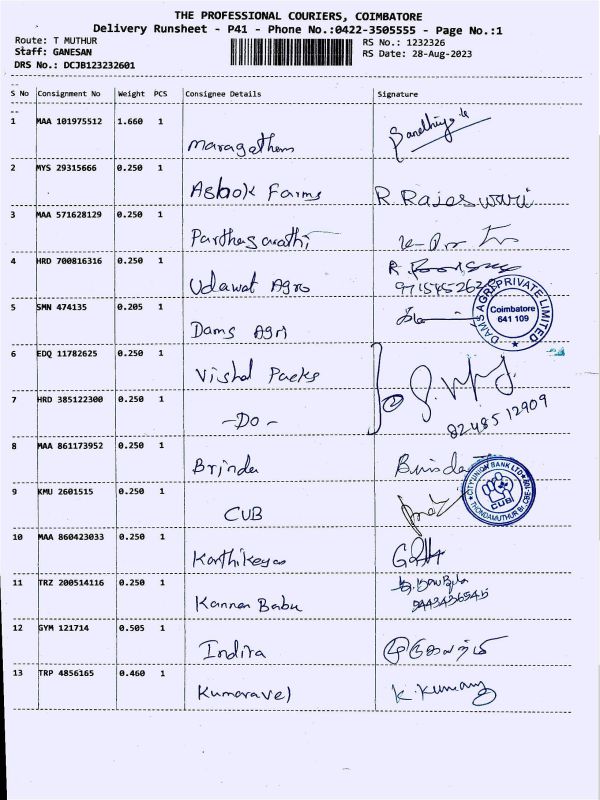 THE PROFESSIONAL COURIERS, COIMBATORE
Delivery Runsheet - P41 - Phone No.:0422-3505555 - Page No.:1
Route: T MUTHUR
RS No.: 1232326
Staff: GANESAN
RS Date: 28-Aug-2023
DRS No.: DCJB123232601
S No Consignment No Weight PCS Consignee Details Signature
1 MAA 101975512 1.660 1 Maragatham
2 MYS 29315666 0.250 1 Ashok Farms R. Rajeswari
3 MAA 571628129 0.250 1 Parthasarathi
4 HRD 700816316 0.250 1 Udawat Agro R.
5 SMN 474135 0.205 1 Dams Agri
DAMS AGRI PRIVATE LIMITED
Coimbatore
641 109
6 EDQ 11782625 0.250 1 Vishal Packs
7 HRD 385122300 0.250 1 -Do- 2
8248512909
8 MAA 861173952 0.250 1 Brinda Brinda
9 KMU 2601515 0.250 1 CUB
CITY UNION BANK LTD
CUB
THONDAMUTHUR Br.
10 MAA 860423033 0.250 1 Karthikeyan
11 TRZ 200514116 0.250 1 Kannan Babu
9443436545
12 GYM 121714 0.505 1 Indira
13 TRP 4856165 0.460 1 Kumaravel K. Kumar